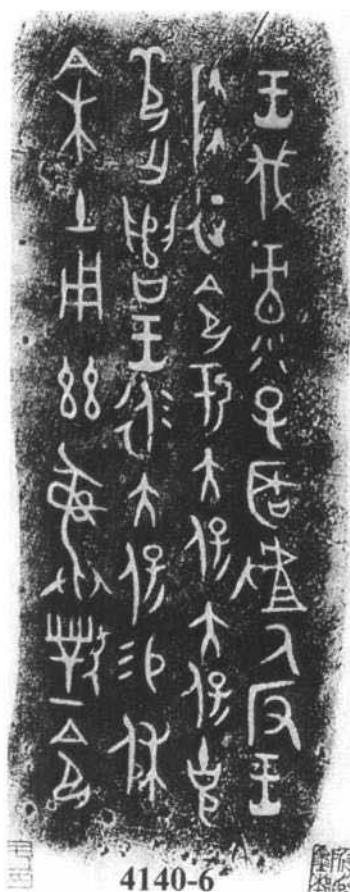 王伐彔子耴𠭯氒反王
降征令于大保大保克
芍亡遣王𠂢大保易休
余土用𢆶彝對令
4140-6